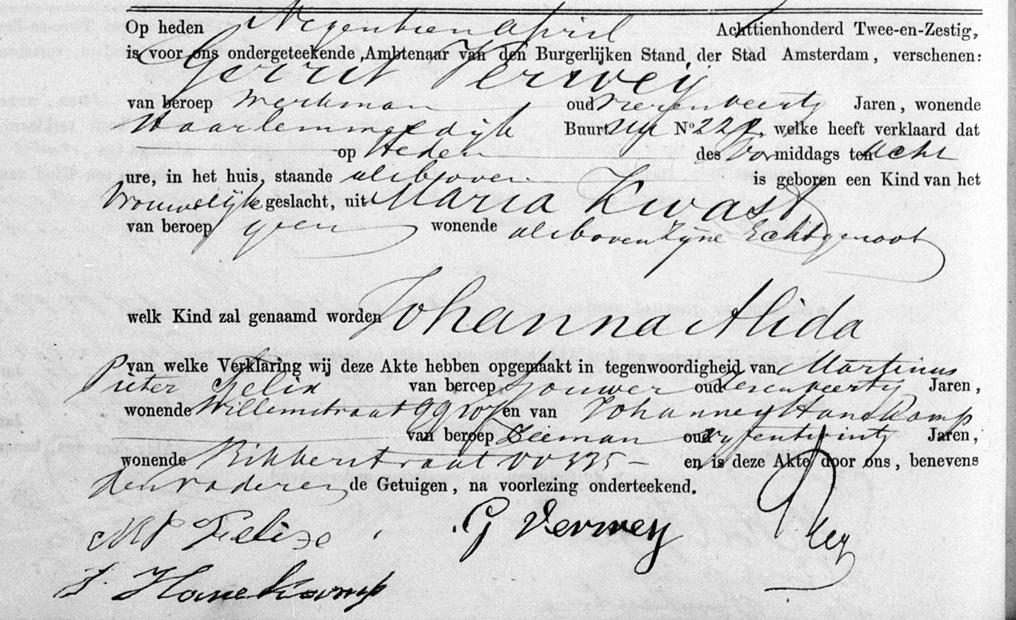 Op heden Negentien April Achttienhonderd Twee-en-Zestig,
is voor ons ondergeteekende, Ambtenaar van den Burgerlijken Stand, der Stad Amsterdam, verschenen:
Gerrit Verweij
van beroep Werkman oud vierenveertig Jaren, wonende
Haarlemmerdijk Buurt N° 222, welke heeft verklaard dat
op Heden des Voormiddags ten acht
ure, in het huis, staande alsboven is geboren een Kind van het
Vrouwelijk geslacht, uit Maria Kwast
van beroep geen wonende alsboven Zijne Echtgenoot
welk Kind zal genaamd worden Johanna Alida
van welke Verklaring wij deze Akte hebben opgemaakt in tegenwoordigheid van Martinus
Pieter Felix van beroep Sjouwer oud Jaren,
wonende Willemstraat en van Johannes Hanekamp
van beroep Zeeman oud vyfentwintig Jaren,
wonende Ridderstraat OO 335 en is deze Akte door ons, benevens
den vader en de Getuigen, na voorlezing onderteekend.
MP Felix G Verwey
J. Hanekamp